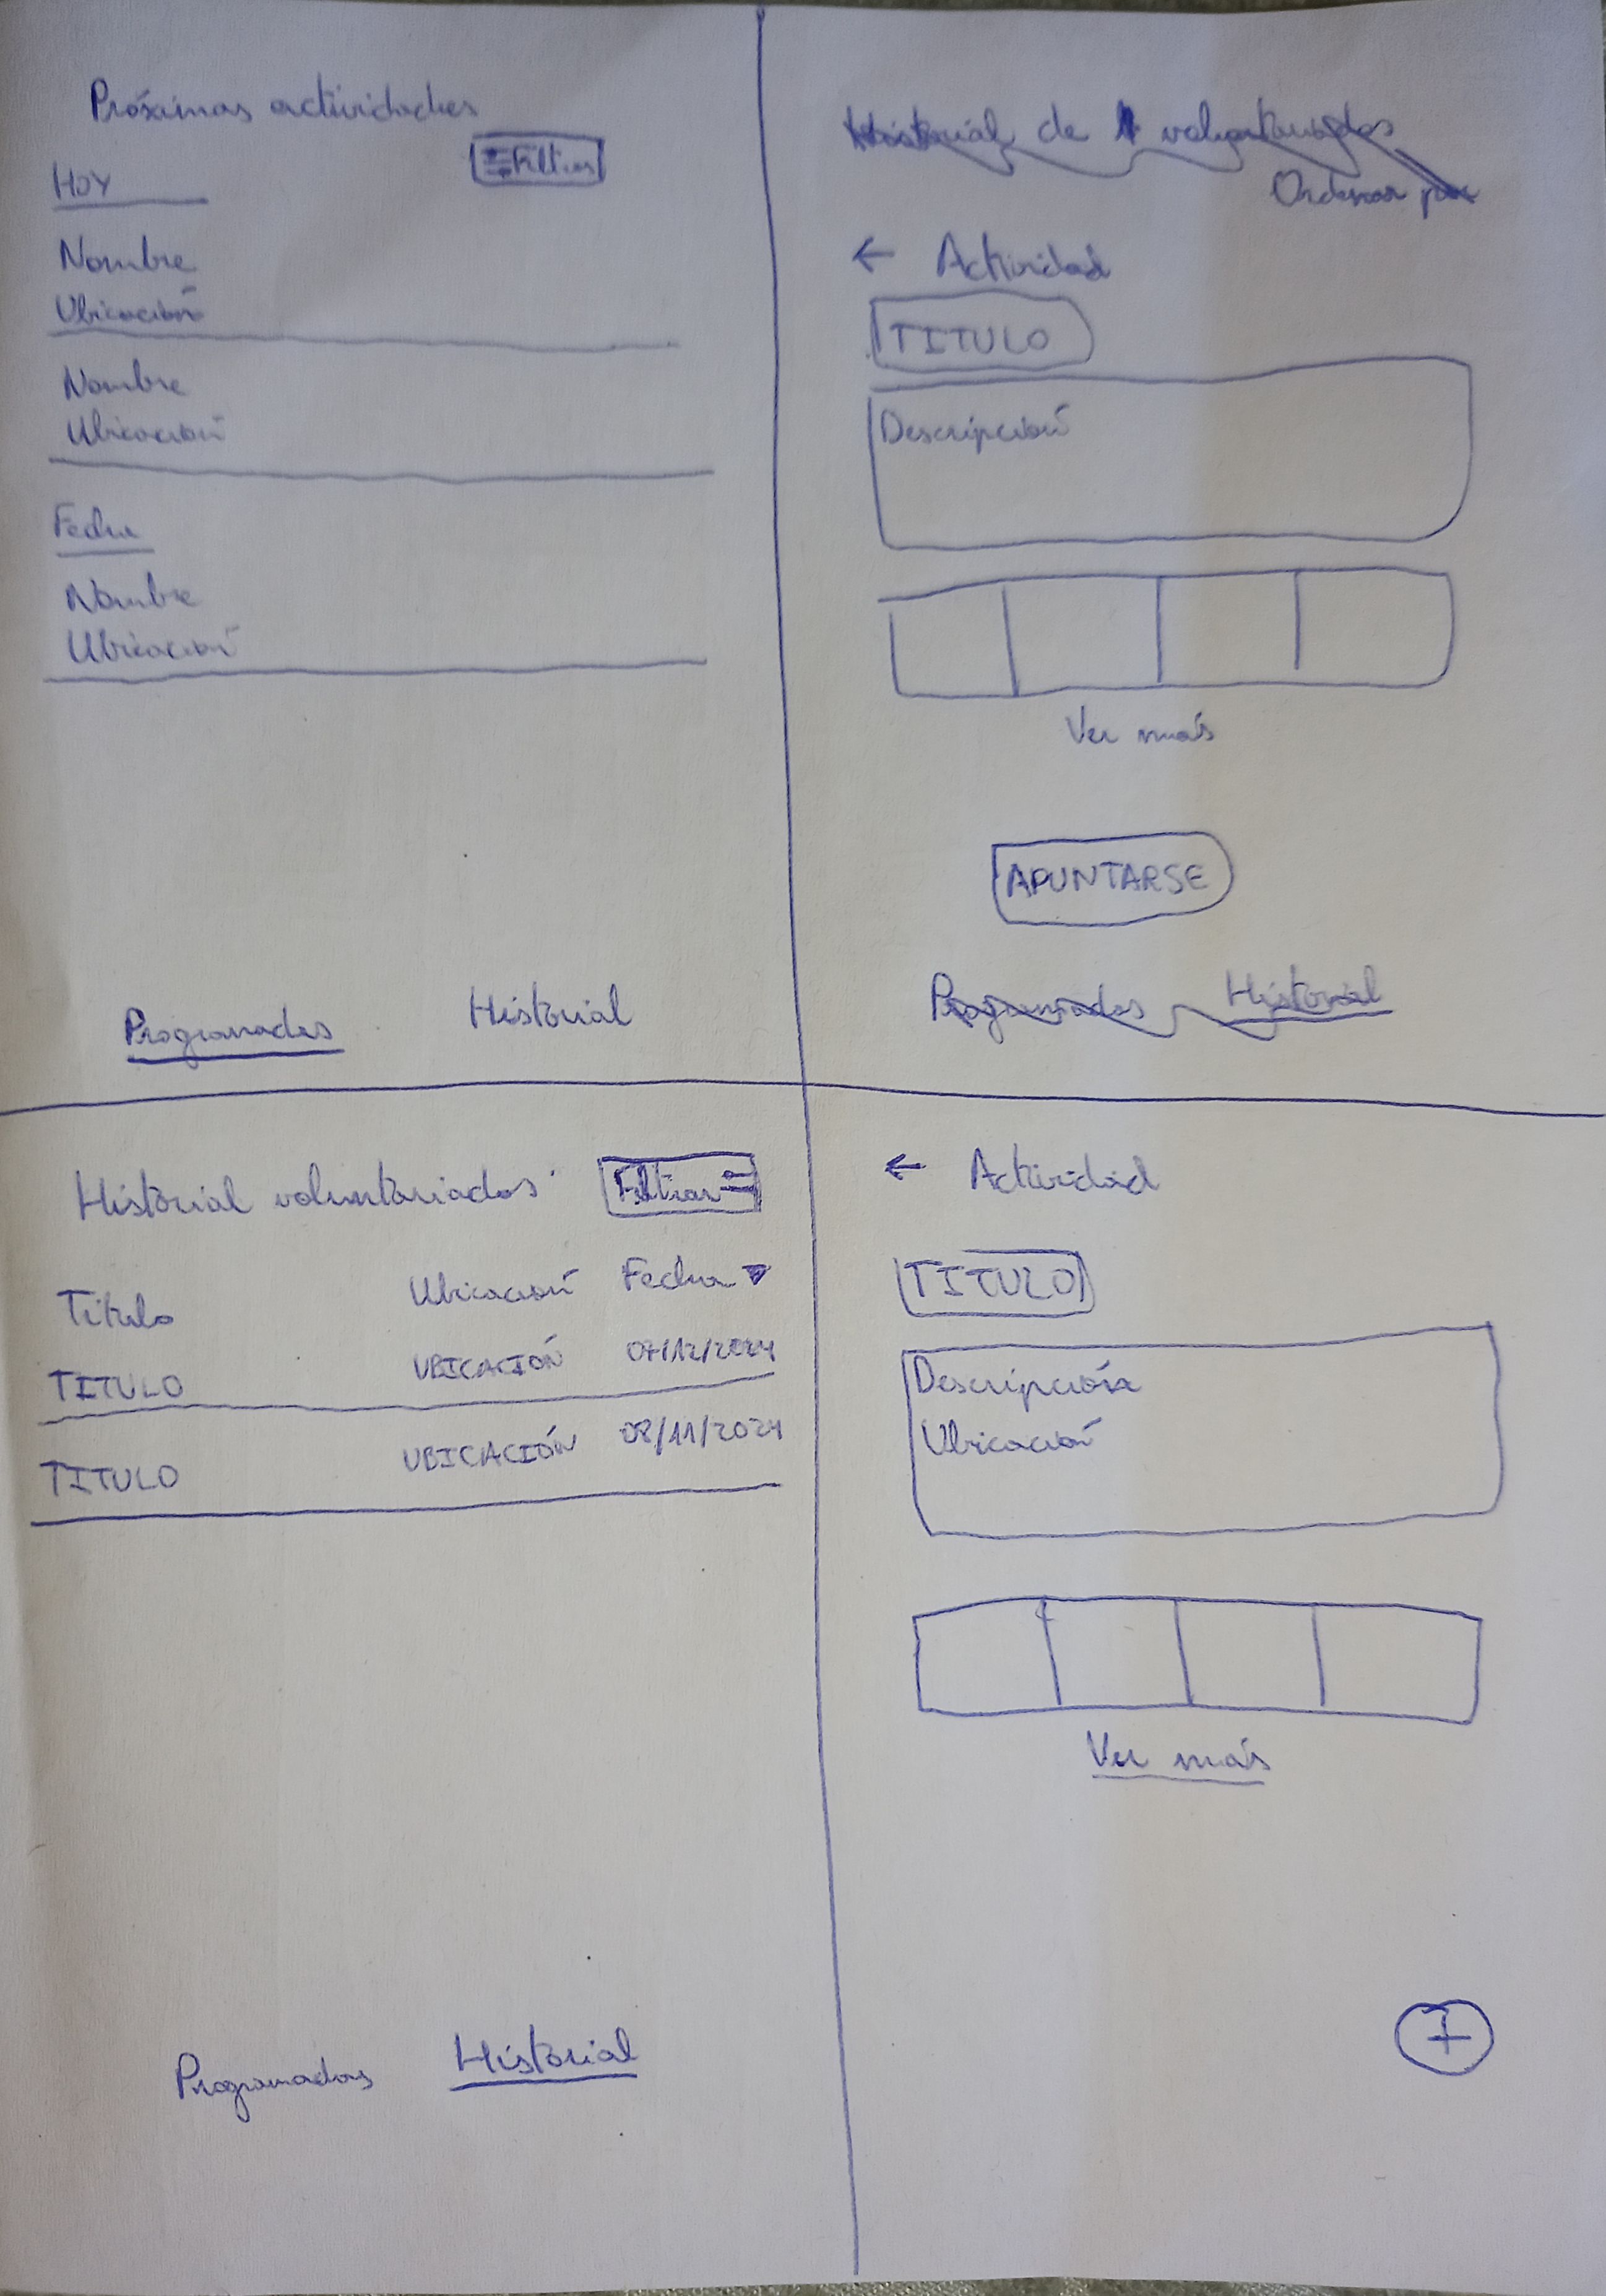 Próximas actividades
Filtros
HOY
Nombre
Ubicación
Nombre
Ubicación
Fecha
Nombre
Ubicación
Programadas Historial
Historial de voluntariados
Ordenar por
← Actividad
TITULO
Descripción
Ver más
APUNTARSE
Programadas Historial
Historial voluntariados
Filtrar
Titulo Ubicación Fecha ▼
TITULO UBICACIÓN 07/12/2024
TITULO UBICACIÓN 08/11/2024
Programadas Historial
← Actividad
TITULO
Descripción
Ubicación
Ver más
+